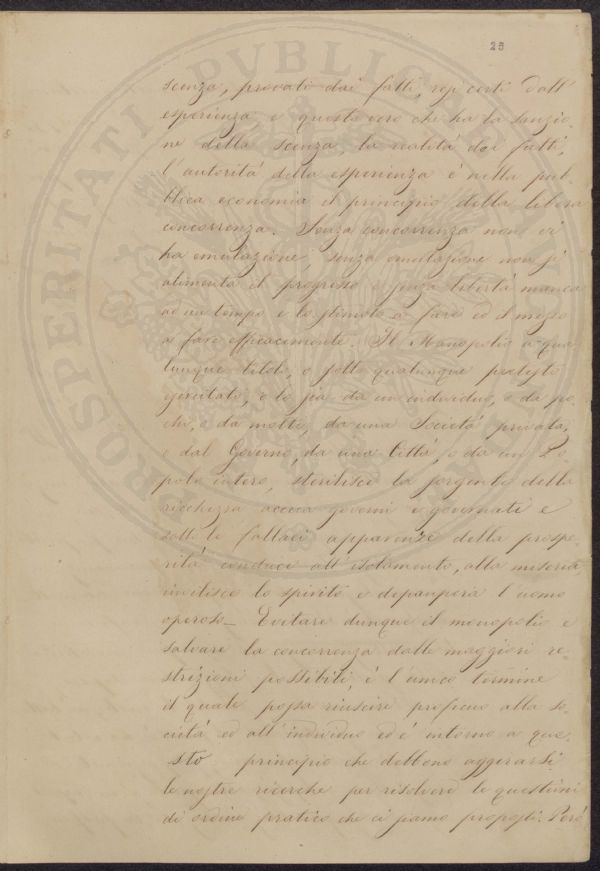 25
scenza, provato dai fatti, resi certi dall'
esperienza, e questo vero che ha la sanzio
ne della scenza, la realità dei fatti,
l'autorità della esperienza è nella pub
blica economia il principio della libera
concorrenza. Senza concorrenza non vi
ha emulazione senza emulazione non s'
alimenta il progresso e senza libertà manca
ad un tempo e lo stimolo a fare ed il mezzo
a fare efficacemente. Il Monopolio a qua
lunque titolo, o sotto qualunque pretesto
esercitato, e lo sia da un individuo, o da po
chi, o da molti, da una Società privata,
o dal Governo, da una Città, o da un Po-
polo intero, sterilisce la sorgente della
ricchezza acceca governi e governati e
sotto le fallaci apparenze della prospe
rità conduce all'isolamento, alla miseria
invilisce lo spirito e depaupera l'uomo
operoso_ Evitare dunque il monopolio e
salvare la concorrenza dalle maggiori re
strizioni possibili, è l'unico termine
il quale possa riuscire proficuo alla so-
cietà ed all'individuo ed è intorno a que-
sto principio che debbono aggirarsi
le nostre ricerche per risolvere le questioni
di ordine pratico che ci siamo proposti. Però
PROSPERITATI PVBLICAE